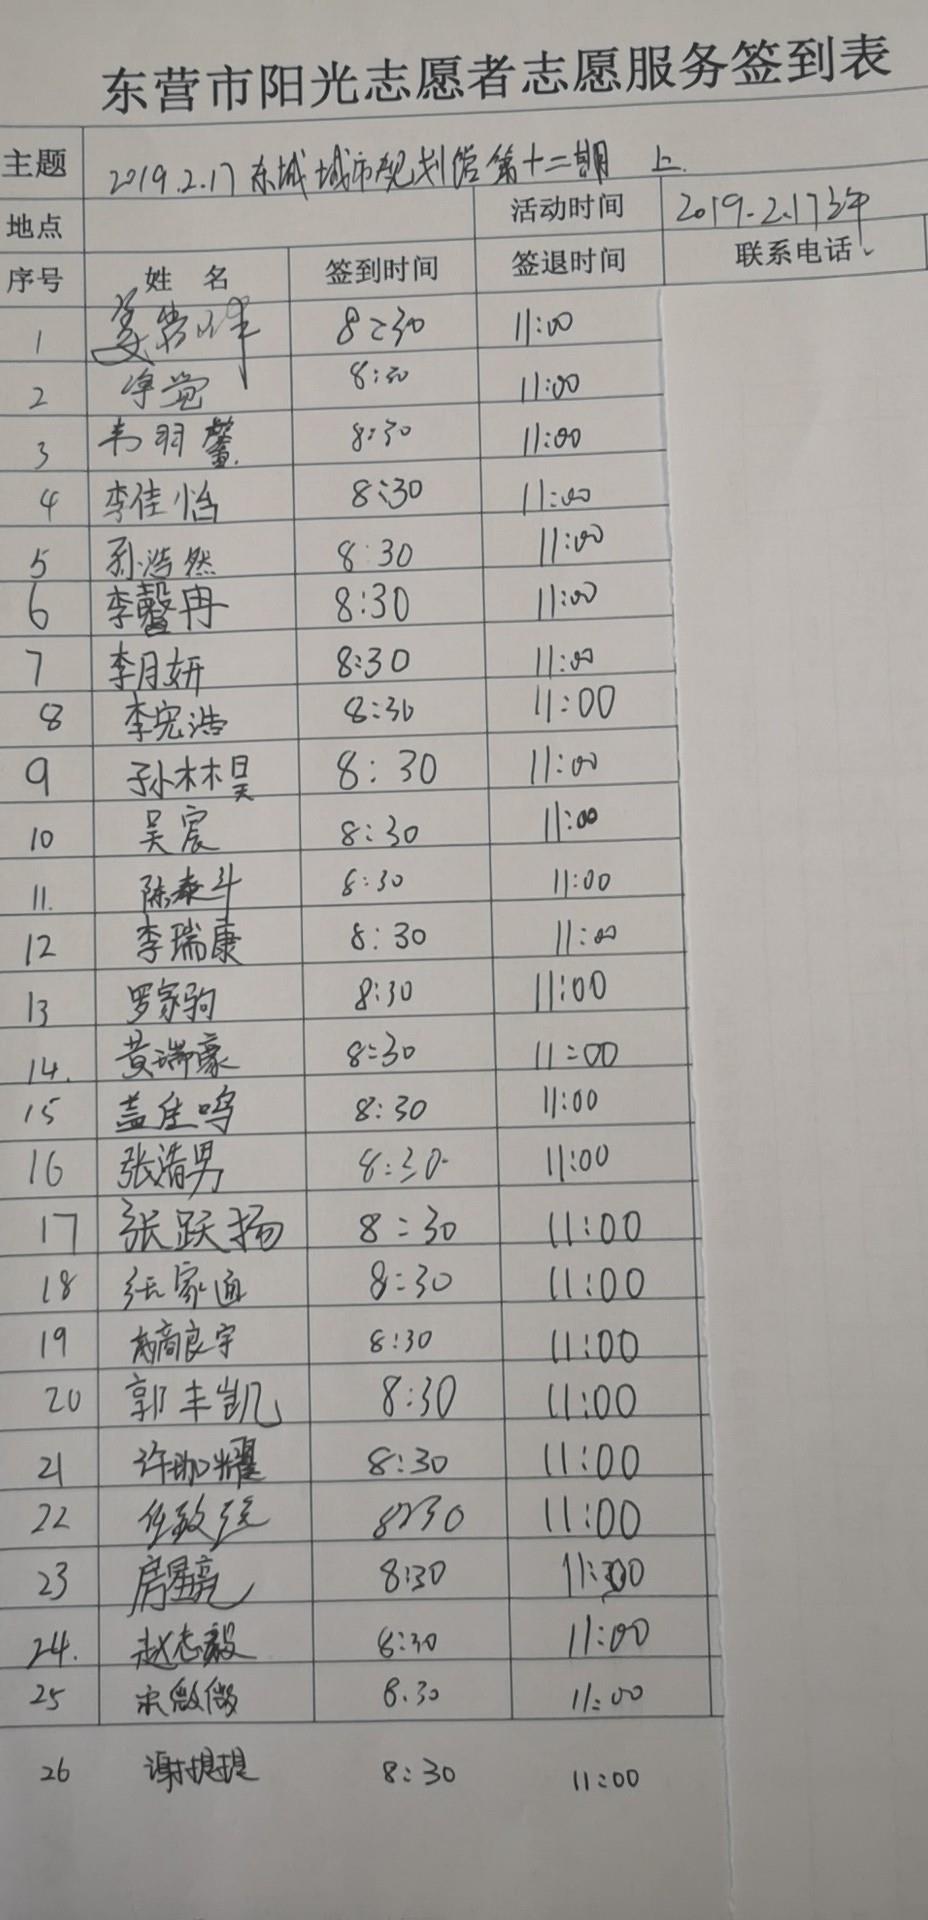 东营市阳光志愿者志愿服务签到表
主题 2019.2.17 东城城市规划馆第十二期 上.
地点 活动时间 2019.2.17上午
序号 姓 名 签到时间 签退时间 联系电话
1 8:30 11:00
2 8:30 11:00
3 韦羽馨 8:30 11:00
4 李佳怡 8:30 11:00
5 孙浩然 8:30 11:00
6 李馨冉 8:30 11:00
7 李月妍 8:30 11:00
8 李宪浩 8:30 11:00
9 孙林昊 8:30 11:00
10 吴宸 8:30 11:00
11. 陈泰斗 8:30 11:00
12 李瑞康 8:30 11:00
13 罗家驹 8:30 11:00
14. 黄瑞豪 8:30 11:00
15 盖佳鸣 8:30 11:00
16 张浩男 8:30 11:00
17 张跃扬 8:30 11:00
18 张家通 8:30 11:00
19 良宇 8:30 11:00
20 郭丰凯 8:30 11:00
21 许珈耀 8:30 11:00
22 任致 8:30 11:00
23 房星亮 8:30 11:00
24. 赵志毅 8:30 11:00
25 宋微微 8.30 11:00
26 谢提提 8:30 11:00